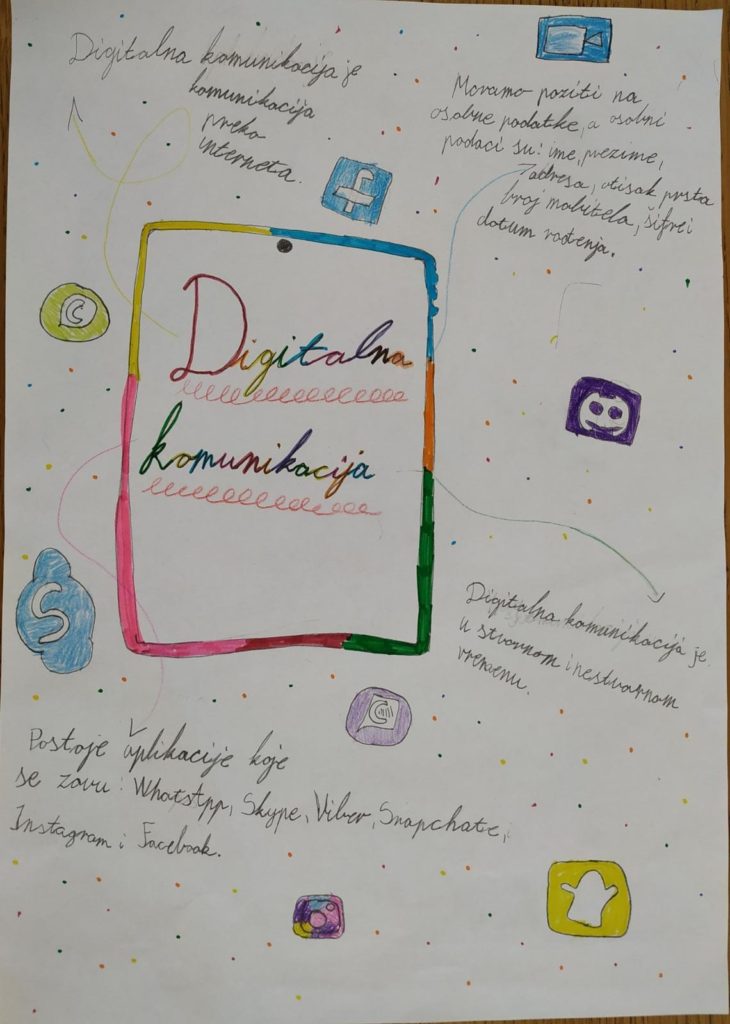 Digitalna komunikacija je
komunikacija
preko
interneta.
Moramo paziti na
osobne podatke, a osobni
podaci su: ime, prezime,
adresa, otisak prsta
broj mobitela, šifre i
datum rođenja.
Digitalna
komunikacija
Digitalna komunikacija je
u stvarnom i nestvarnom
vremenu.
Postoje aplikacije koje
se zovu: WhatsApp, Skype, Viber, Snapchate,
Instagram i Facebook.